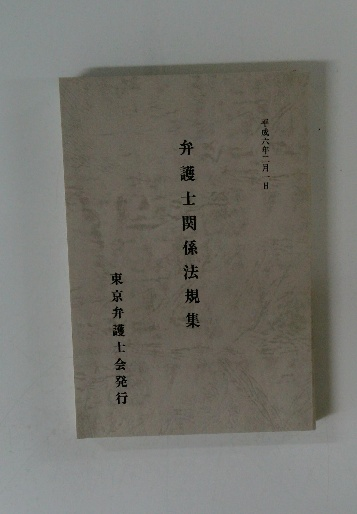 平成六年二月一日
弁護士関係法規集
東京弁護士会発行